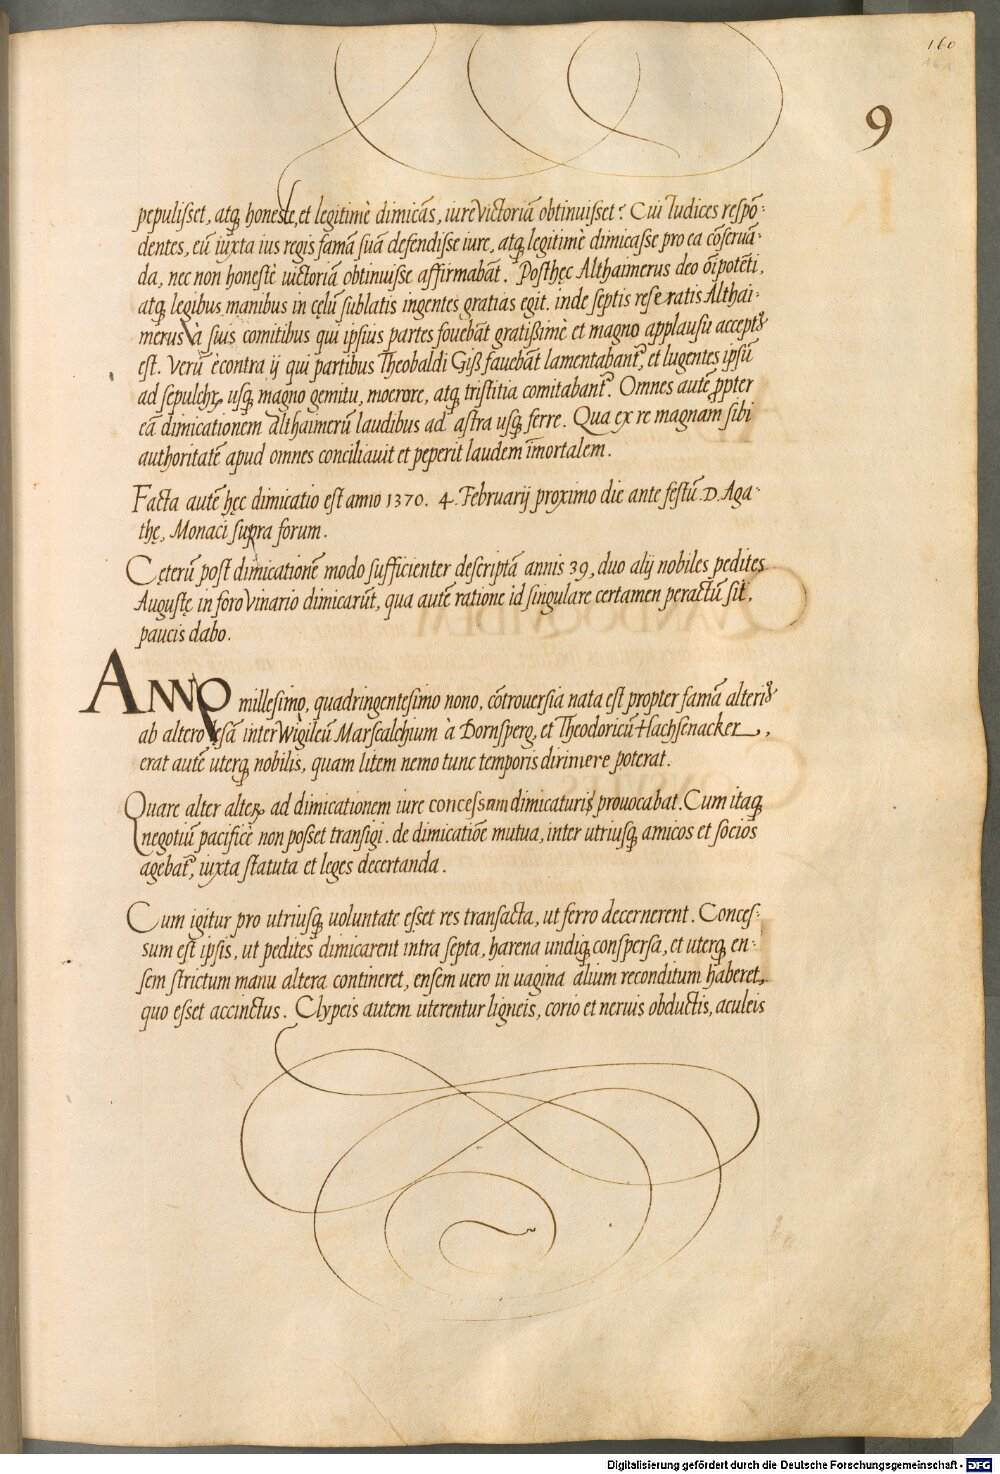 160
9
pepulisset, atq₃ honeste, et legitimè dimicãs, iure victoriã obtinuisset? Cui Iudices respõ-
dentes, eũ iuxta ius regis famã suã defendisse iure, atq₃ legitimè dimicasse pro ea cõseruã-
da, nec non honestè uictoriã obtinuisse affirmabãt. Posthęc Althaimerus deo õipotẽti,
atq₃ legibus manibus in cęlũ sublatis ingentes gratias egit. inde septis reseratis Althai-
merus à suis comitibus qui ipsius partes fouebãt gratißimè et magno applausu acceptꝰ
est. Verũ ècontra ij qui partibus Theobaldi Giß fauebãt lamentabant᷑, et lugentes ipsũ
ad sepulchꝝ usq₃ magno gemitu, moerore, atq₃ tristitia comitabant᷑. Omnes autẽ ꝓpter
eã dimicationem althaimerũ laudibus ad astra usq₃ ferre. Qua ex re magnam sibi
authoritatẽ apud omnes conciliauit et peperit laudem ĩmortalem.
Facta autẽ hęc dimicatio est anno 1370. 4. Februarij proximo die ante festũ D. Aga-
thę, Monaci supra forum.
Cęterũ post dimicationẽ modo sufficienter descriptã annis 39, duo alij nobiles pedites
Augustę in foro Vinario dimicarũt, qua autẽ ratione id singulare certamen peractũ sit,
paucis dabo.
ANNO millesimo, quadringentesimo nono, cõtrouersia nata est propter famã alteriꝰ
ab altero lesã inter Wigileũ Marscalchium à Dornsperg, et Theodoricũ Hachsenacker,
erat autẽ uterq₃ nobilis, quam litem nemo tunc temporis dirimere poterat.
Quare alter alteꝝ ad dimicationem iure concessam dimicaturis prouocabat. Cum itaq₃
negotiũ pacificè non posset transigi. de dimicatiõe mutua, inter utriusq₃ amicos et socios
agebat᷑, iuxta statuta et leges decertanda.
Cum igitur pro utriusq₃ uoluntate esset res transacta, ut ferro decernerent. Conces-
sum est ipsis, ut pedites dimicarent intra septa, harena undiq₃ conspersa, et uterq₃ en-
sem strictum manu altera contineret, ensem uero in uagina alium reconditum haberet,
quo esset accinctus. Clypeis autem uterentur ligneis, corio et neruis obductis, aculeis
Digitalisierung gefördert durch die Deutsche Forschungsgemeinschaft - DFG